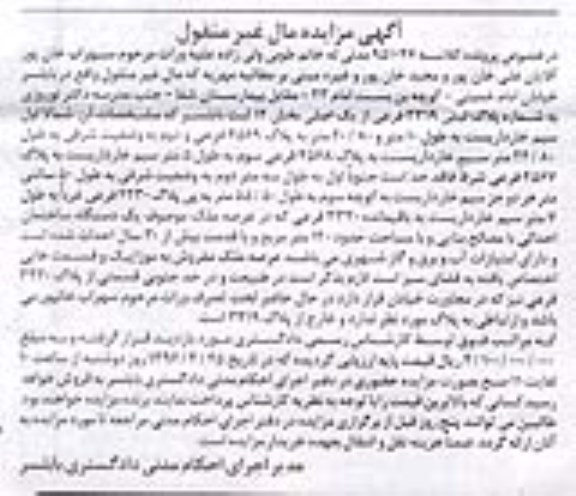 آگهی مزایده مال غیر منقول
در خصوص پرونده کلاسه ۹۵۰۴۷ مدنی که خانم طوبی ولی زاده علیه وراث مرحوم سهراب خان پور
آقایان علی خان پور و مجید خان پور و غیره مبنی بر مطالبه مهریه که مال غیر منقول واقع در بابلسر
خیابان امام خمینی - کوچه بن بست امام ۲۳ - مقابل بیمارستان شفا - جنب مدرسه دکتر نوروزی
به شماره پلاک ثبتی ۳۳۱۹ فرعی از یک اصلی بخش ۱۲ ثبت بابلسر که مشخصات آن شمالا اول
سیم خارداریست به طول ۱۰ متر و ۲۰/۸۰ متر به پلاک ۴۵۶۹ فرعی و دوم به وضعیت شرقی به طول
متر سیم خارداریست به پلاک ۴۵۶۸ فرعی سوم به طول ۵ متر سیم خارداریست به پلاک
۴۵۶۷ فرعی شرقا فاقد حد است جنوبا اول به طول سه متر دوم به وضعیت شرقی به طول ۵۰ سانتی
متر هر دو مرز سیم خارداریست به کوچه سوم به طول متر به پی پلاک ۲۲۳۰ فرعی غربا به طول
۷ متر سیم خارداریست به باقیمانده ۳۳۲۰ فرعی که در عرصه ملک موصوف یک دستگاه ساختمان
احداثی با مصالح بنایی و با مساحت حدود ۱۲۰ متر مربع و با قدمت بیش از ۳۰ سال احداث شده است
و دارای امتیازات آب و برق و گاز شهری می باشد. عرصه ملک مفروش به موزاییک و قسمت هایی
اختصاص یافته به فضای سبز است لازم بذکر است در طبیعت و در حد جنوبی قسمتی از پلاک ۲۲۳۰
فرعی نیز که در مجاورت خیابان قرار دارد در حال حاضر تحت تصرف وراث مرحوم سهراب خانپور می
باشد و ارتباطی به پلاک مورد نظر ندارد و خارج از پلاک ۳۳۱۹ است.
کلیه مراتب فوق توسط کارشناس رسمی دادگستری مورد بازدید قرار گرفته و به مبلغ
ریال قیمت پایه ارزیابی گردیده که در تاریخ ۱۳۹۶/۴/۲۵ روز دوشنبه از ساعت ۱۰
لغایت ۱۲ صبح بصورت مزایده حضوری در دفتر اجرای احکام مدنی دادگستری بابلسر به فروش خواهد
رسید کسانی که بالاترین قیمت را با توجه به نظریه کارشناس پرداخت نمایند برنده مزایده خواهند بود
طالبین می توانند پنج روز قبل از برگزاری مزایده در دفتر اجرای احکام مدنی مراجعه تا مورد مزایده به
آنان ارائه گردد. ضمنا هزینه نقل و انتقال بعهده خریدار مزایده است.
مدیر اجرای احکام مدنی دادگستری بابلسر